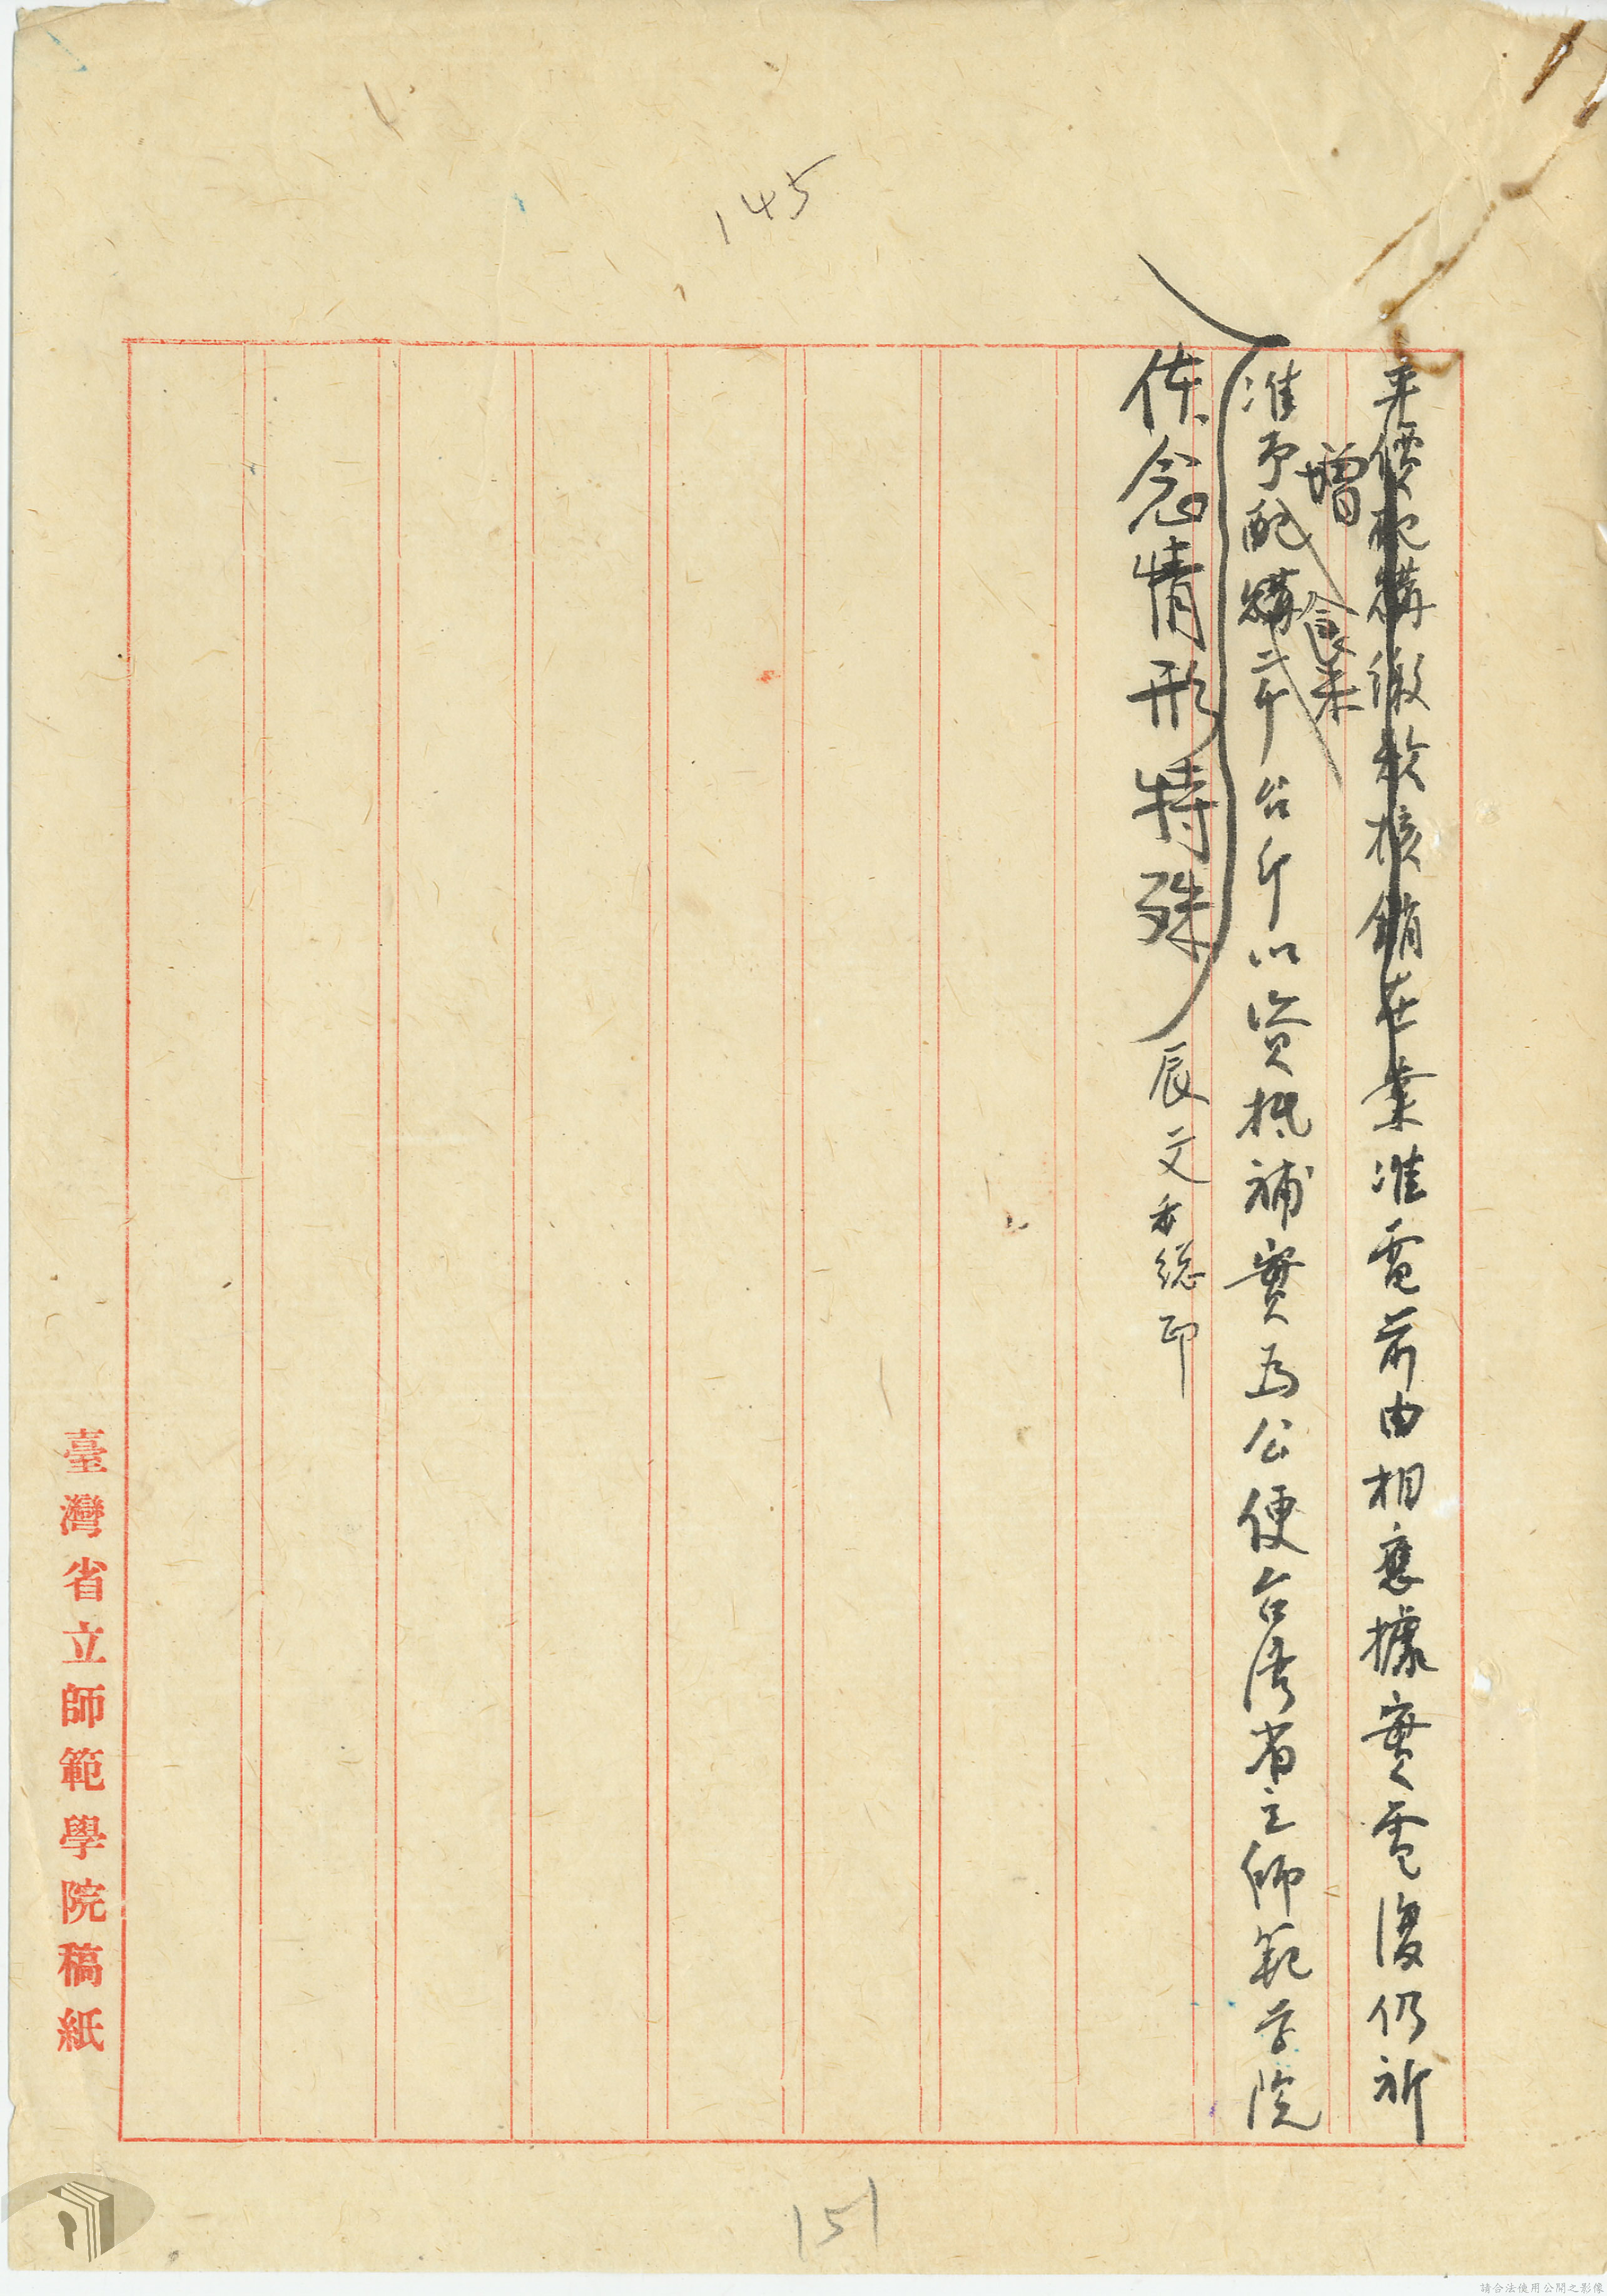 145
平價配購繳於核銷在案准電前由相應據實電復仍祈
增 食米
准予配購 台斤以資抵補實為公便台灣省立師範学院
体念情形特殊
辰文 総印
臺灣省立師範學院稿紙
151
請合法使用公開之影像